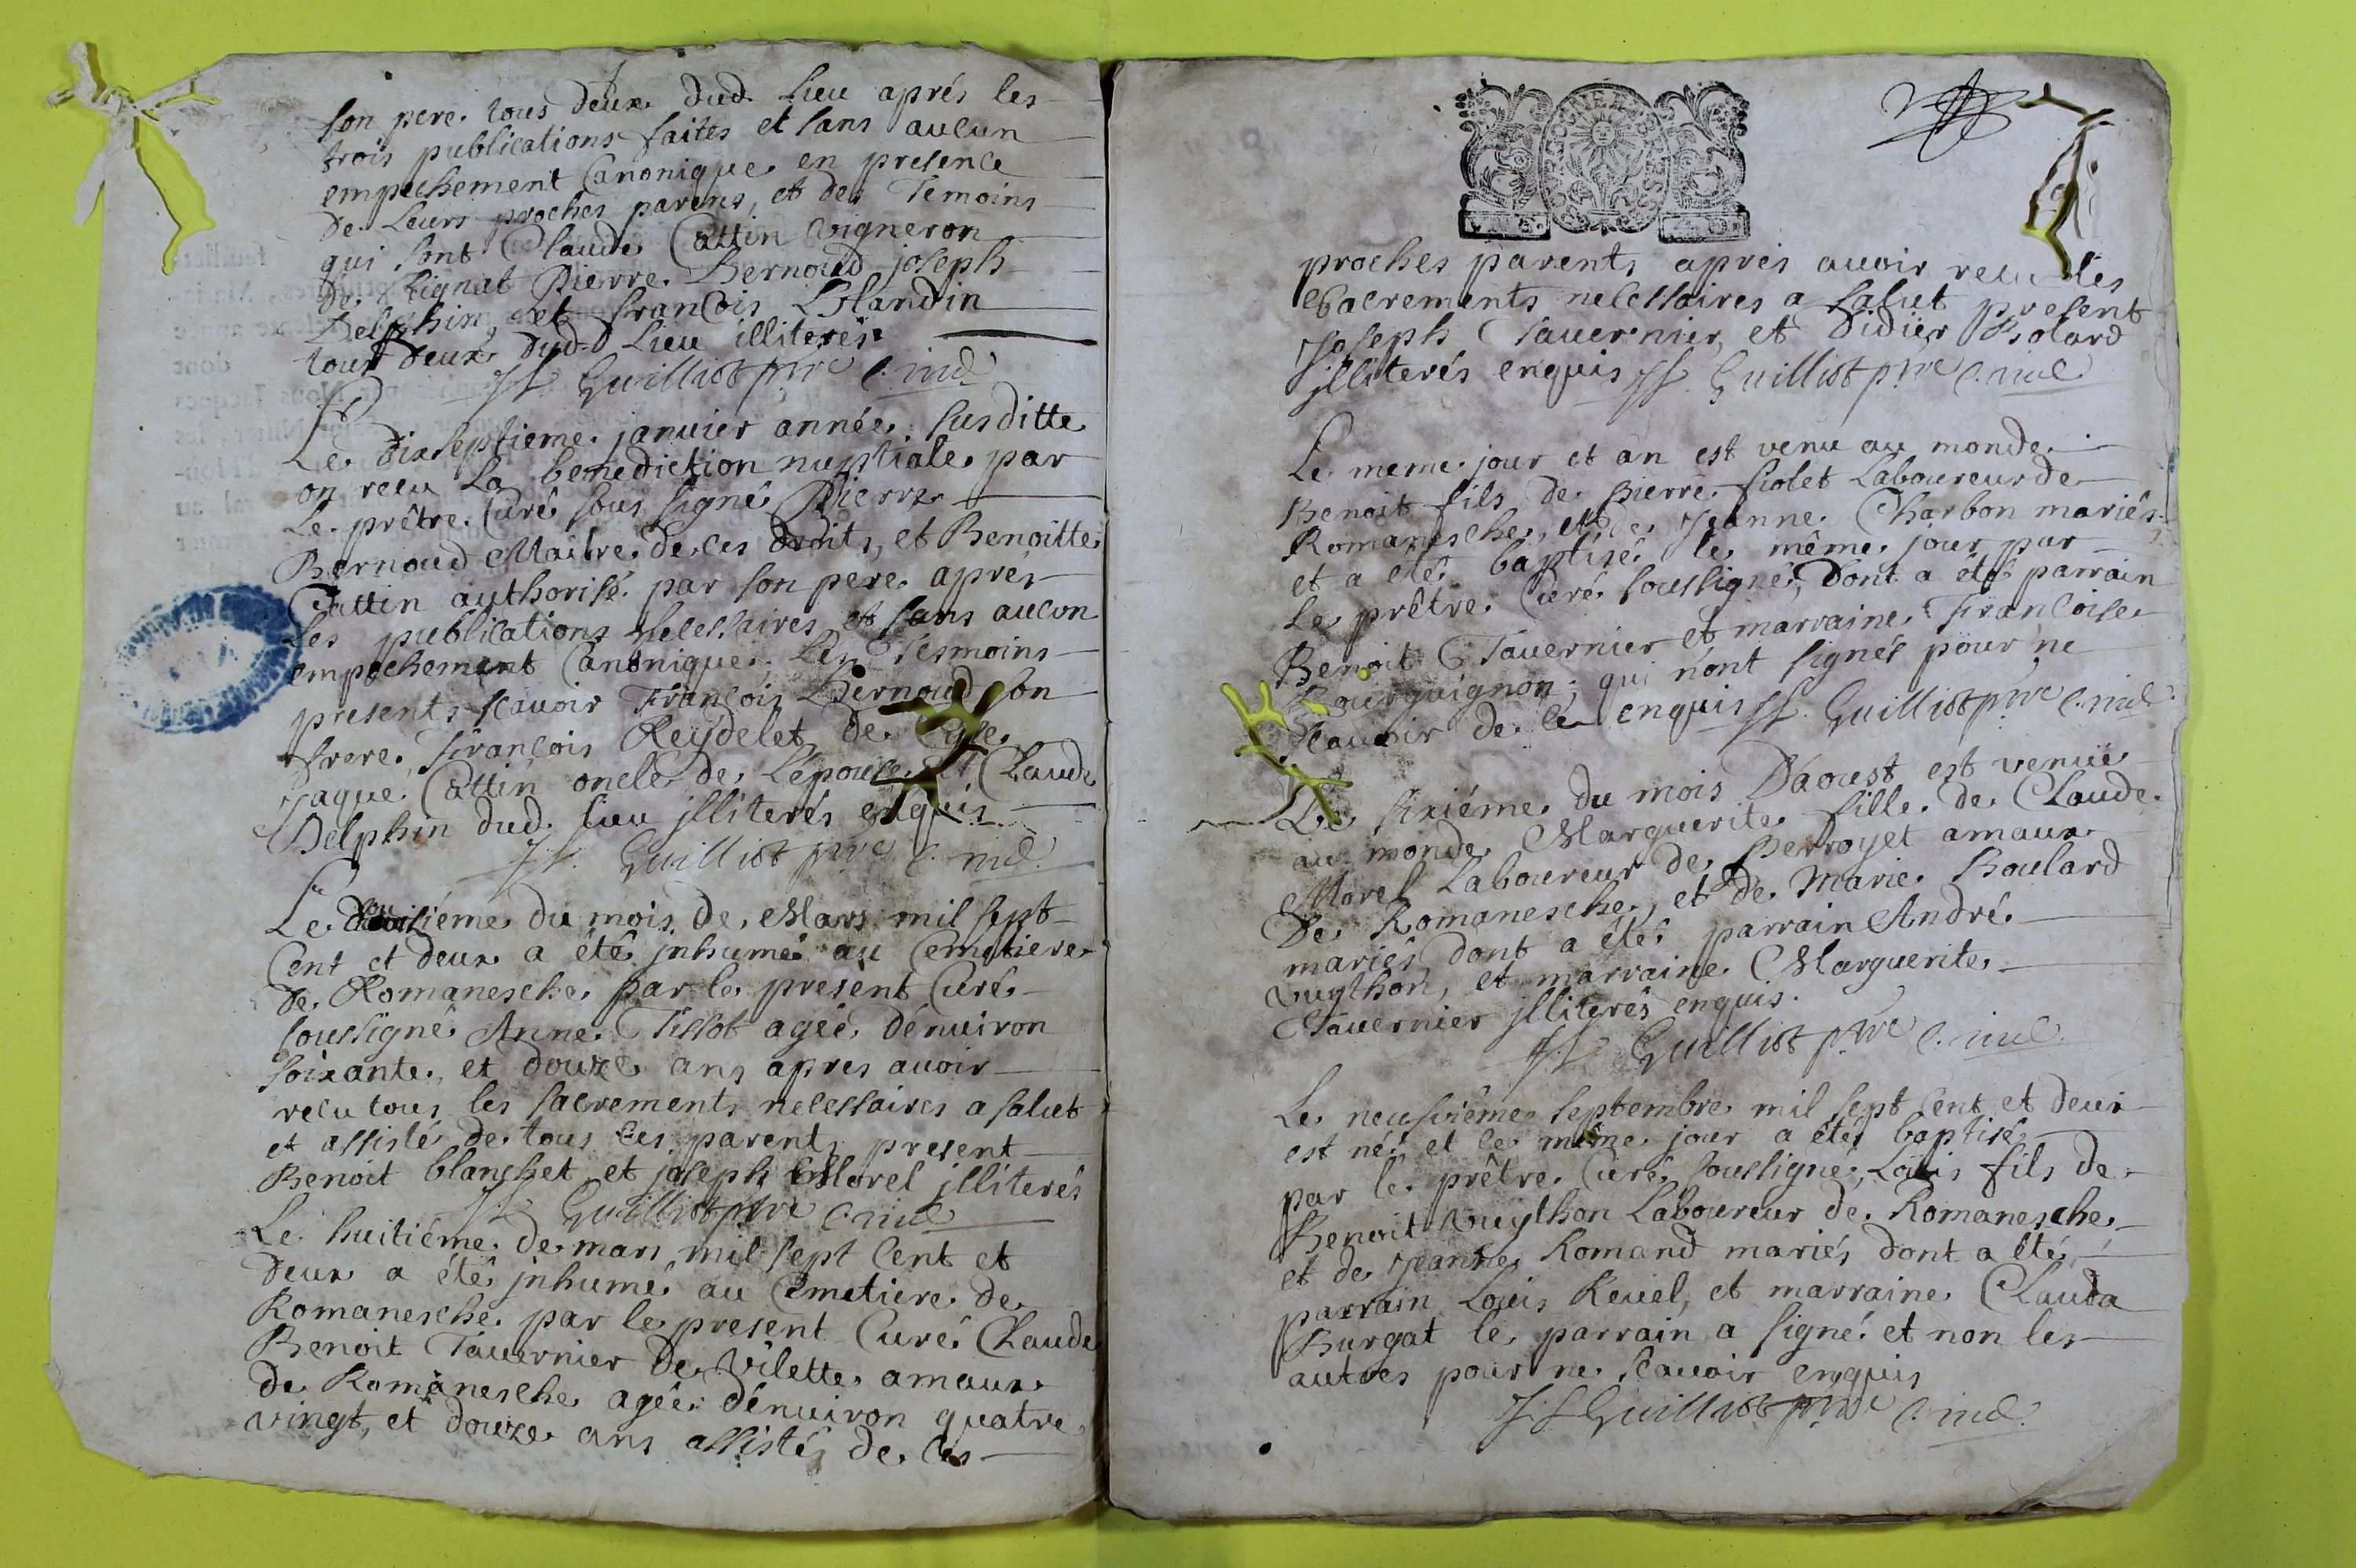 son pere tous deux dud. lieu aprés les
trois publications faites et sans aucun
empechement Canonique en presence
de Leurs proches parens, et des Temoins
qui sont Claude Cattin vigneron
de Lignat Pierre Bernoud joseph
Delphin, et francois Blandin
tous deux dud. Lieu illiterés
Guilliot ptre c. ind.
Le dixseptieme janvier année susditte
on recu La benediction nuptiale par
Le prêtre Curé sous signé Pierre
Bernoud Maître de ces droits, et Benoitte
Cattin authorisé par son pere aprés
Les publications necessaires et sans aucun
empechement Canonique. Les Tesmoins
presents scavoir François Bernoud son
frere, François Reydelet de
jaque Cattin oncle de L'epouse et Claude
Delphin dud. lieu jlliterés enquis
Guilliot ptre c. ind.
Le douzième du mois de Mars mil sept
Cent et deux a été jnhumé au Cemetiere
de Romanesche par le present Curé
soussigné Anne Tissot agée d'enuiron
soixante, et douze ans apres auoir
recu tous les sacrements necessaires a salut
et assisté de tous ses parents present
Benoit blanchet et joseph Morel jlliterés
Guilliot ptre c. ind.
Le huitiéme de mars mil sept Cent et
deux a été jnhumé au Cemetiere de
Romanesche par le present Curé Claude
Benoit Tauernier de Vilette amaux
de Romanesche agée d'enuiron quatre
vingt, et douze ans assistés de ces
proches parents aprés auoir recu les
sacrements necessaires a salut present
Joseph Tauernier, et Didier Bolard
jlliterés enquis Guilliot ptre c. ind.
Le meme jour et an est venu au monde
Benoit fils de pierre fiolet Laboureur de
Romanesche, et de Jeanne Charbon mariés
et a etés baptisé le même jour par
Le prêtre Curé soussigné, Dont a eté parrain
Benoit Tauernier et marraine Françoise
Bourguignon; qui n'ont signés pour ne
scauoir de ce enquis Guilliot ptre c. ind.
Le sixiéme du mois D'aoust est venuë
au monde Marguerite fille de Claude
Morel Laboureur de Perroyet amaux
De Romanesche, et de Marie Boulard
mariés dont a étés parrain André
vuython, et marraine Marguerite
Tauernier jlliterés enquis.
Guilliot ptre c. ind.
Le neufviéme septembre mil sept Cent et deux
est né et le même jour a étés baptisé
par le prêtre Curé soussigné, Loüis fils de
Benoit vuython Laboureur de Romanesche
et de jeanne Romand mariés dont a été
parrain Loüis Reuel, et marraine Clauda
Burgat le parrain a signé et non les
autres pour ne scauoir enquis
Guilliot ptre c. ind.